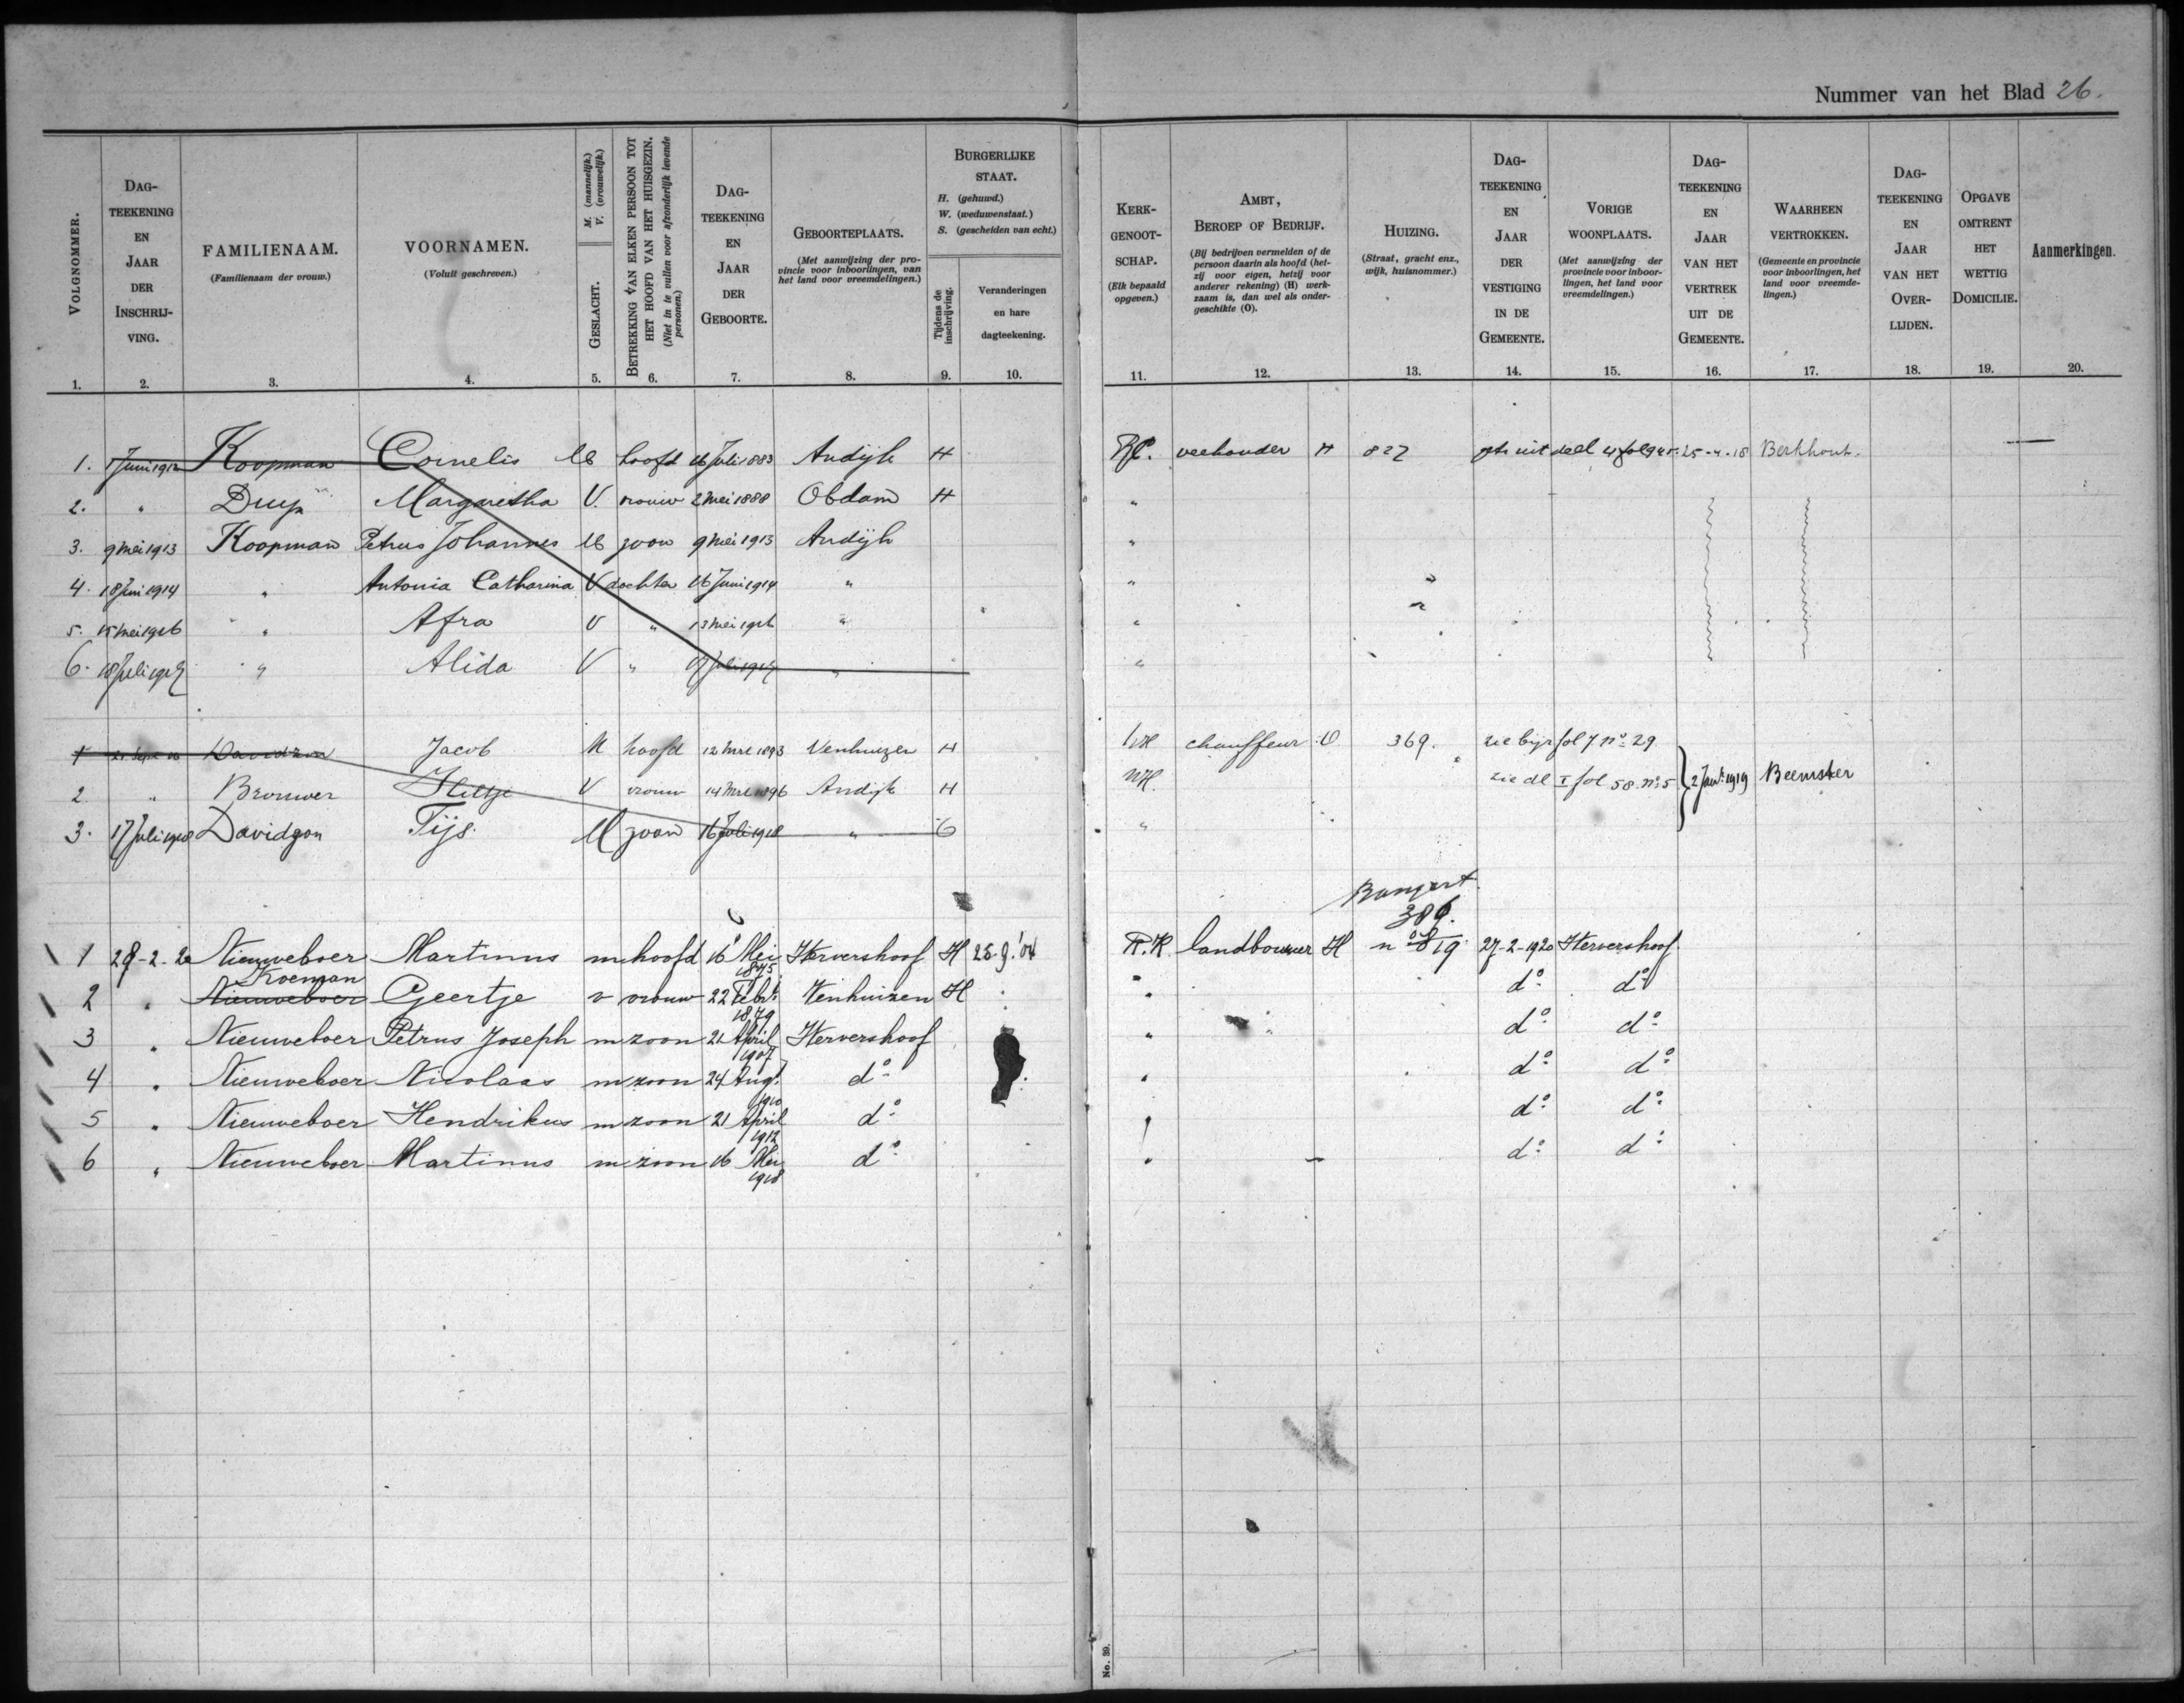 Nummer van het Blad 26.
VOLGNOMMER. 1.
DAG-TEEKENING EN JAAR DER INSCHRIJ-VING. 2.
FAMILIENAAM. (Familienaam der vrouw.) 3.
VOORNAMEN. (Voluit geschreven.) 4.
GESLACHT. M. (mannelijk.) V. (vrouwelijk.) 5.
BETREKKING VAN ELKEN PERSOON TOT HET HOOFD VAN HET HUISGEZIN. (Niet in te vullen voor afzonderlijk levende personen.) 6.
DAG-TEEKENING EN JAAR DER GEBOORTE. 7.
GEBOORTEPLAATS. (Met aanwijzing der provincie voor inboorlingen, van het land voor vreemdelingen.) 8.
BURGERLIJKE STAAT. H. (gehuwd.) W. (weduwenstaat.) S. (gescheiden van echt.)
Tijdens de inschrijving. 9.
Veranderingen en hare dagteekening. 10.
KERK-GENOOT-SCHAP. (Elk bepaald opgeven.) 11.
AMBT, BEROEP OF BEDRIJF. (Bij bedrijven vermelden of de persoon daarin als hoofd (hetzij voor eigen, hetzij voor anderer rekening) (H) werkzaam is, dan wel als ondergeschikte (O). 12.
HUIZING. (Straat, gracht enz., wijk, huisnommer.) 13.
DAG-TEEKENING EN JAAR DER VESTIGING IN DE GEMEENTE. 14.
VORIGE WOONPLAATS. (Met aanwijzing der provincie voor inboorlingen, het land voor vreemdelingen.) 15.
DAG-TEEKENING EN JAAR VAN HET VERTREK UIT DE GEMEENTE. 16.
WAARHEEN VERTROKKEN. (Gemeente en provincie voor inboorlingen, het land voor vreemdelingen.) 17.
DAG-TEEKENING EN JAAR VAN HET OVER-LIJDEN. 18.
OPGAVE OMTRENT HET WETTIG DOMICILIE. 19.
Aanmerkingen. 20.
1. 1 Juni 1912 Koopman Cornelis M hoofd 16 Juli 1883 Andijk H veehouder H 827 uit deel 25-4-18 Berkhout.
2. " Druijf Margaretha V. vrouw 2 Mei 1888 Obdam H "
3. 9 Mei 1913 Koopman Petrus Johannes M zoon 9 Mei 1913 Andijk "
4. 18 Juni 1914 " Antonia Catharina V dochter 16 Juni 1914 " "
5. 15 Mei 1916 " Afra V " 13 Mei 1916 " "
6. 18 Juli 1917 " Alida V " Juli 1917 " "
1 21 Sept 16 Davidzon Jacob M hoofd 12 Mrt 1893 Venhuizen H NH chauffeur O 369. zie fol 7 no 29
2 " Brouwer V vrouw 14 Mrt 1896 Andijk H NH. zie dl I fol 58 no 5 } 2 Jan 1919 Beemster
3. 17 Juli 1918 Davidzon Tijs. M zoon 16 Juli 1918 " "
Bangert
386.
1 28-2-20 Nieuweboer Martinus m hoofd 16 Mei 1875 Wervershoof H 25.9.'04 R.K landbouwer H no 819 27-2-1920 Wervershoof
Koeman
2 " Nieuweboer Geertje v vrouw 22 Febr. 1879 Venhuizen H " do do
3 " Nieuweboer Petrus Joseph m zoon 21 April 1907 Wervershoof " do do
4 " Nieuweboer Nicolaas m zoon 24 Aug. 1910 do " do do
5 " Nieuweboer Hendrikus m zoon 21 April 1912 do " do do
6 " Nieuweboer Martinus m zoon 16 Mei 1918 do " do do
No. 39.